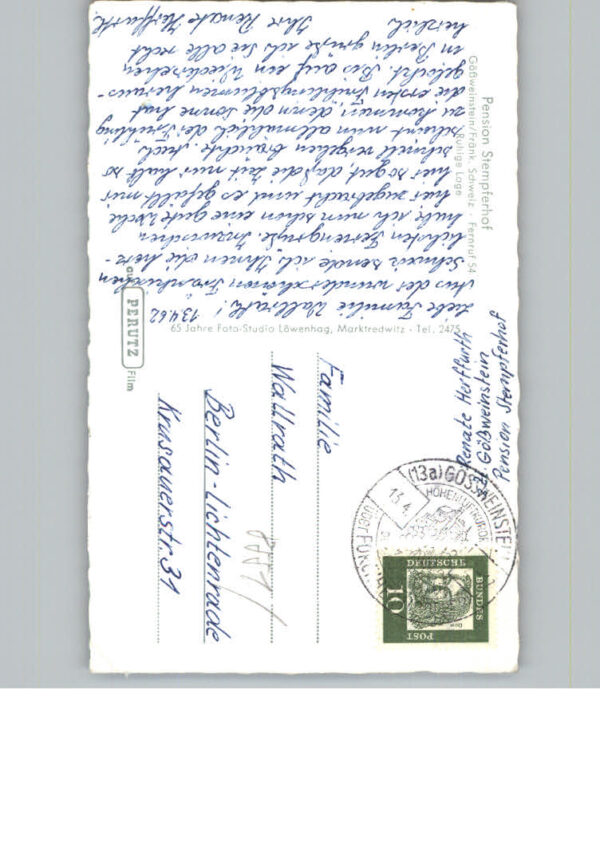 Pension Stempferhof
Gößweinstein/Fränk. Schweiz - Fernruf 54
Ruhige Lage
Liebe Familie Wallrath! 13.4.62
Aus der wunderschönen Fränkischen
Schweiz sende ich Ihnen die herz-
lichsten Feriengrüße. Inzwischen
habe ich nun schon eine gute Woche
hier zugebracht und es gefällt mir
hier so gut, daß die Zeit nur halb so
schnell vergehen bräuchte. Auch
scheint nun allmählich der Frühling
zu kommen, denn die Sonne hat
die ersten Frühlingsblumen heraus-
gelockt. Bis auf ein Wiedersehen
in Berlin grüße ich Sie alle recht
herzlich
Ihre Renate Herffurth
65 Jahre Foto-Studio Löwenhag, Marktredwitz - Tel. 2475
PERUTZ
Film
Renate Herffurth
Gößweinstein
Pension Stempferhof
Familie
Wallrath
Berlin-Lichtenrade
Krusauerstr. 31
(13a) GÖSSWEINSTEIN
13.4.
HÖHENLUFTKURORT
über FORCHHEIM
DEUTSCHE
BUNDES
POST
10